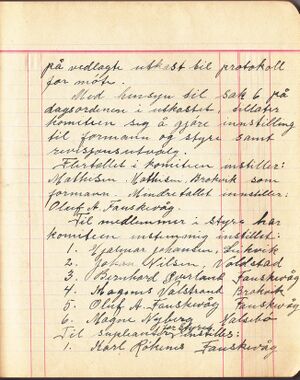 på vedlagte utkast til protokoll
for møte.
Med hensyn til sak 6 på
dagsordenen i utkastet tillater
komiteen sig å gjøre innstilling
til formann og styre samt
revisjonsutvalg.
Flertallet i komiteen innstiller:
Mathisen Brokvik som
formann. Mindretallet innstiller:
Oluf A. Fauskevåg.
Til medlemmer i styre har
komiteen enstemmig innstillet:
1. Hjalmar Johansen,
2. Johan Nilsen Voldstad
3. Bernhard Fauskevåg
4. Magnus Valstrand Brokvik
5. Oluf A. Fauskevåg Fauskevåg
6. Magne Nyberg
Til suppleanter for styre innstilles:
1. Karl Rökenes Fauskevåg